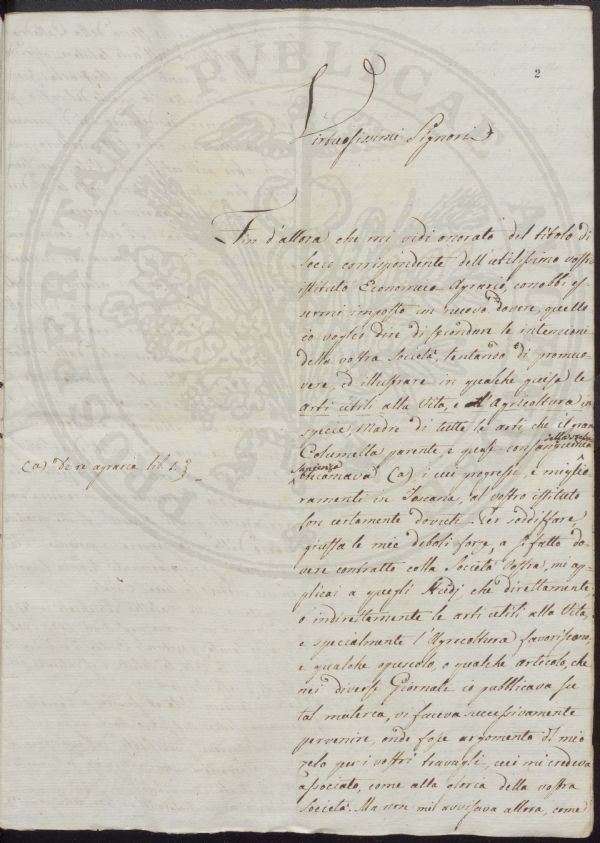 2
Virtuosissimi Signori
Fin d'allora che mi vidi onorato del titolo di
socio corrispondente dell'utilissimo vostro
istituto Economico Agrario, conobbi es-
sermi imposto un nuovo dovere, quello
io voglio dire di secondare le intenzioni
della vostra Società, tentando di promuo-
vere, ed illustrare in qualche guisa le
arti utili alla Vita, e l'Agricoltura in
specie, Madre di tutte le arti che il gran
Columella parente, e quasi consanguinea
della
sapienza
chiamava (a) i cui progressi, e miglio-
(a) De re agraria lib. 1. 3
ramenti in Toscana, al vostro istituto
son certamente dovuti. Per soddisfare,
giusta le mie deboli forze, a sì fatto do-
vere contratto colla Società Vostra, mi ap-
plicai a quegli studj, che direttamente,
o indirettamente le arti utili alla Vita,
e specialmente l'Agricoltura favoriscono,
e qualche opuscolo, o qualche articolo, che
nei diversi Giornali io pubblicava su
tal materia, vi faceva successivamente
pervenire, onde fosse argomento del mio
zelo per i vostri travagli, cui mi credeva
associato, come alla gloria della vostra
Società. Ma non mi avvisava allora, come
PROSPERITATI PVBLICAE A